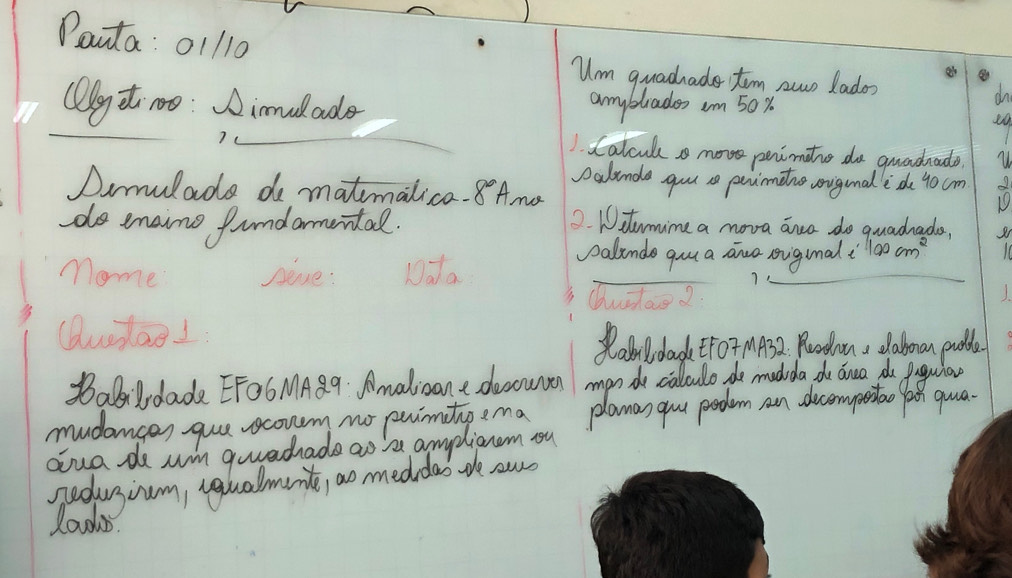 Pauta: 01/10
Objetivo: Simulado
Simulado de matemática - 8º Ano
do ensino fundamental.
Nome série: Data
Questão 1:
Habilidade EF06MA29. Analisar e descrever
mudanças que ocorrem no perímetro e na
área de um quadrado ao se ampliarem ou
reduzirem, igualmente, as medidas de seus
lados.
Um quadrado tem seus lados
ampliados em 50%
1. Calcule o novo perímetro do quadrado,
sabendo que o perímetro original é de 40 cm
2. Determine a nova área do quadrado,
sabendo que a área original é 100 cm²
Questão 2:
Habilidade EF07MA32: Resolver e elaborar proble-
mas de cálculo de medida de área de figuras
planas que podem ser decompostas por qua-